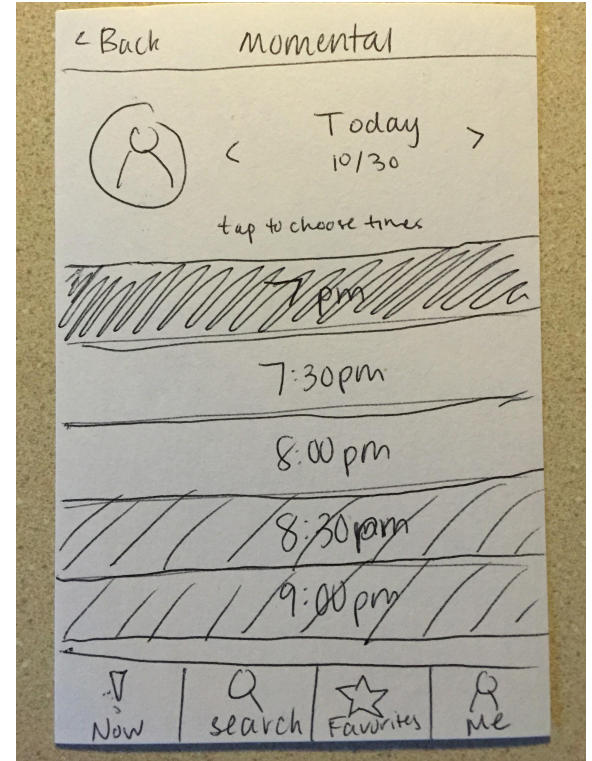 < Back Momental
< Today >
10/30
tap to choose times
7 pm
7:30pm
8:00 pm
8:30pm
9:00 pm
Now search Favorites Me